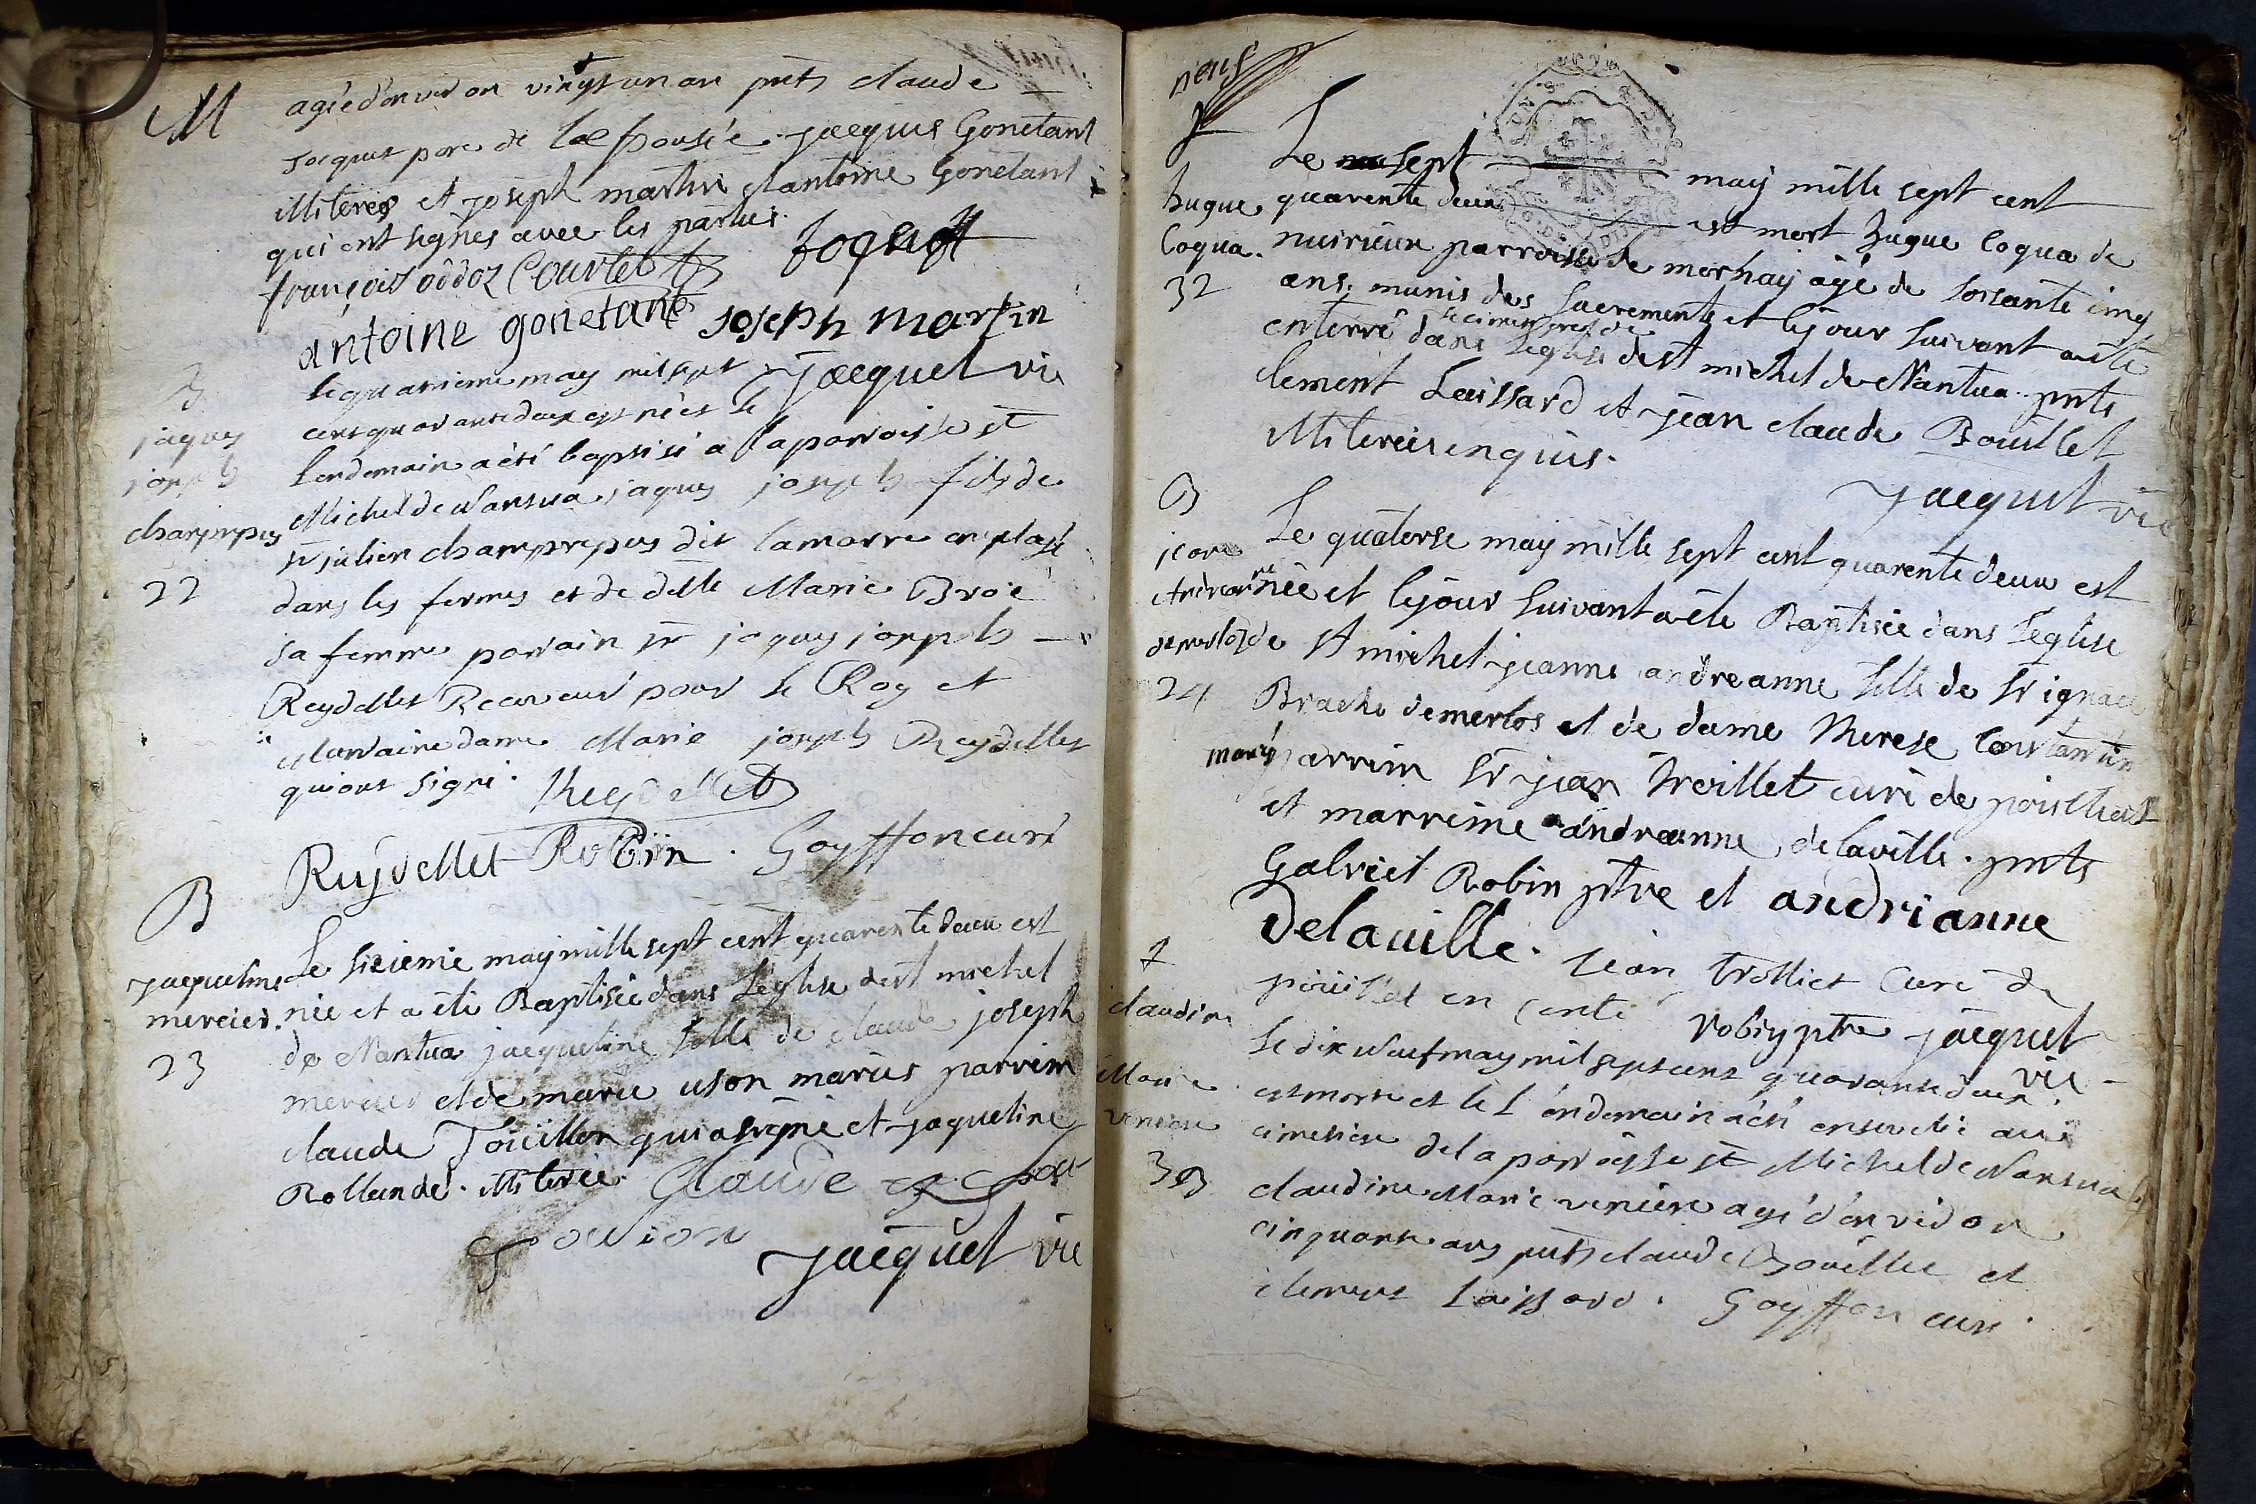 M
agée d'environ vingt un an pnts claude
jacquet pere de l'epousée jacques Gonetant
illiterés et joseph martin et antoine Gonetant
qui ont signés avec les parties.
françois oddoz Courlet joquet
antoine gonetant joseph martin
jacquet vic
B
jaques
joseph
champrepus
22
le quatrieme may mil sept
cent quarante deux est né et le
lendemain a été baptisé a la parroisse st
Michel de Nantua jaques joseph fils de
sr julien champrepus dit lamarre employé
dans les fermes et de delle Marie Broié
sa femme parrain sr jaques joseph
Reydellet Receveur pour le Roy et
Marraine dame Marie joseph Reydellet
qui ont signé. Reydellet
Reydellet Robin. Goyffon curé
B
jacqueline
mercier.
23
Le sixieme may mille sept cent quarente deux est
née et a été Baptisée dans l'eglise de st michel
de Nantua jacqueline fille de claude joseph
mercier et de marie uson mariés parrein
claude Toüillon qui a signé et jaqueline
Rollande. illiterée. Claude
Touion
jacquet vic
neuf
hugue
Coqua.
32
Le sept may mille sept cent
quarente deux est mort hugue Coqua de
nurieux parroisse de mornay agé de soisante cinq
ans. munis des sacrements et le jour suivant a été
le cimetiere de
enterré dans l'eglise de st michel de Nantua. pnts
clement Laissard et jean claude Bouillet
illiterés enquis.
jacquet vic
B
jeanne
Andreanne
demerloz
24
Le quatorse may mille sept cent quarente deux est
née et le jour suivant a été Baptisée dans l'eglise
de st michel jeanne andreanne fille de sr ignace
Brache demerlos et de dame therese Constantin
mariés parrein sr jean troillet curé de poisieat
et marreine andreanne delaville. pnts
Gabriel Robin ptre et andrianne
Delauille. jean trolliet Curé de
poüillat en Comté Robin ptre jacquet
vic
claudine
Marie
veniere
33
le dix neuf may mil sept cent quarante deux
est morte et le lendemain a été ensevelie au
cimetiere de la parroisse st Michel de Nantua
claudine Marie veniere agé d'environ
cinquante ans pnts claude Bouillet et
clement Laissard. Goyffon curé.